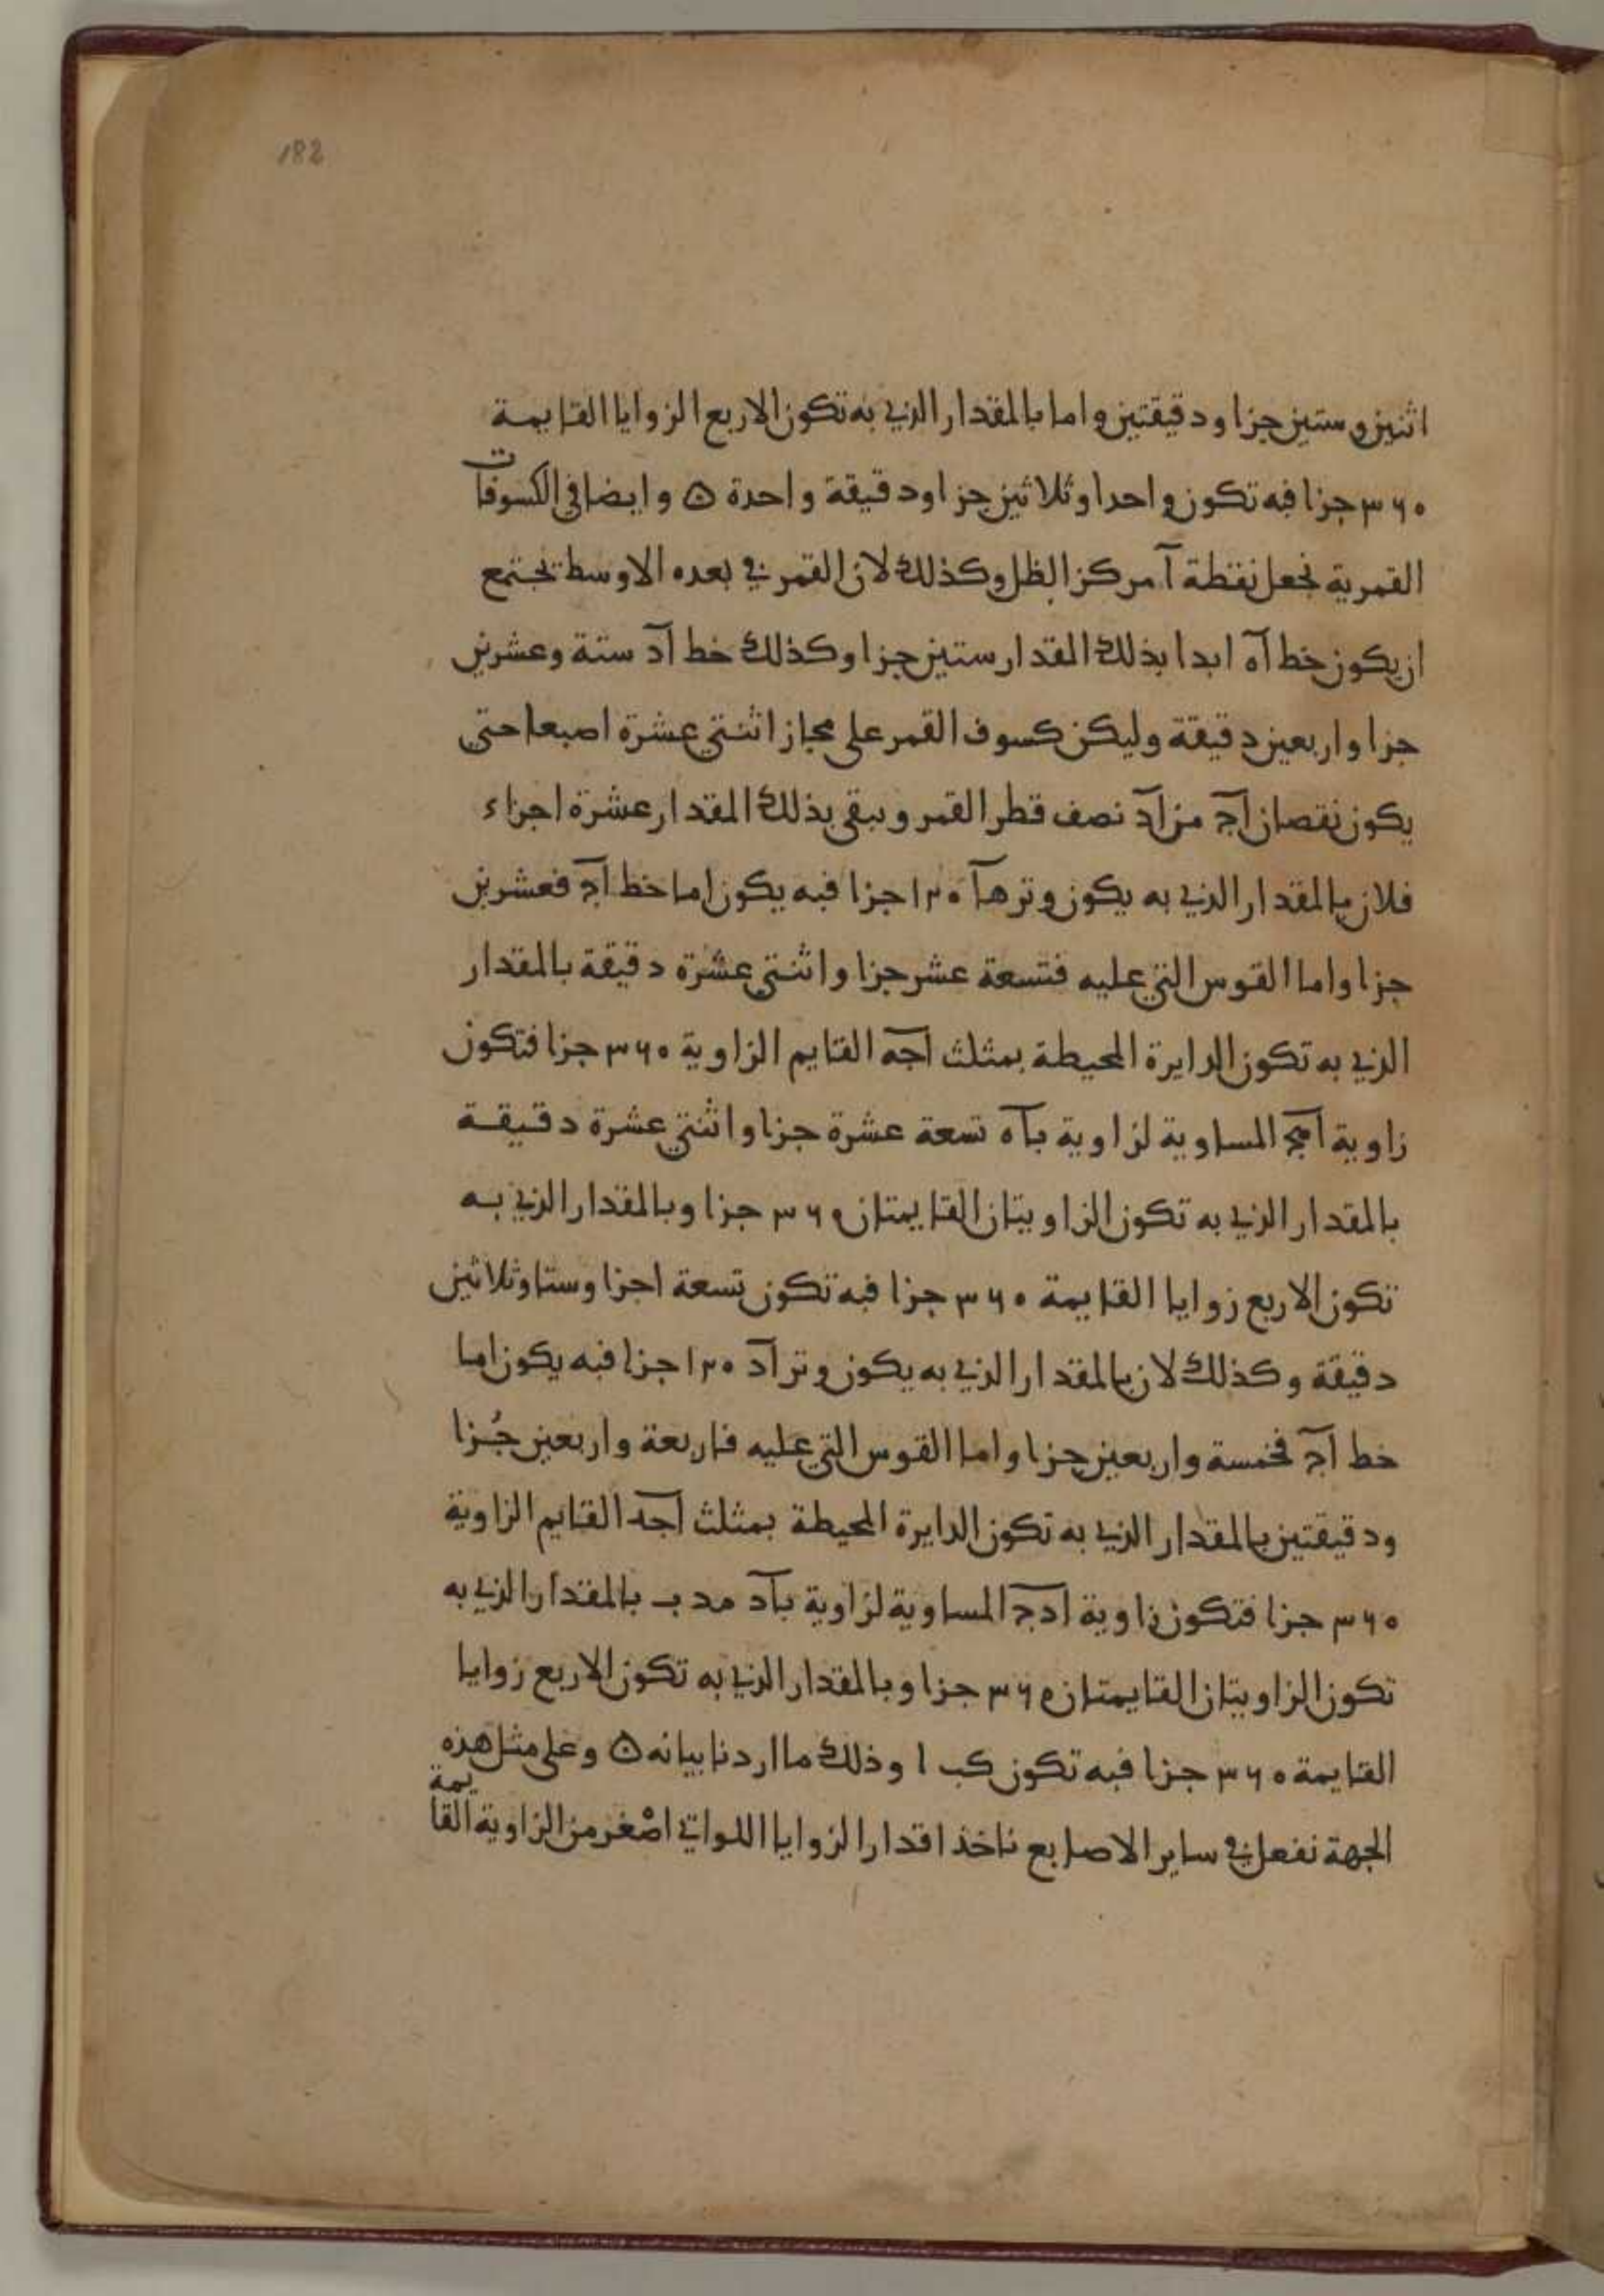 182
اثنين وستين جزا ودقيقتين واما بالمقدار الذي به تكون الاربع الزوايا القايمة
٣٦٠ جزا فبه تكون واحدا وثلاثين جزا ودقيقة واحدة ۵ وايضا في الكسوفات
القمرية نجعل نقطة آ مركز الظل وكذلك لان القمر في بعده الاوسط يجتمع
ان يكون خط آه ابدا بذلك المقدار ستين جزا وكذلك خط آد ستة وعشرين
جزا واربعين دقيقة وليكن كسوف القمر على مجاز اثنتي عشرة اصبعا حتى
يكون نقصان آج من آد نصف قطر القمر ويبقى بذلك المقدار عشرة اجزاء
فلان بالمقدار الذي به يكون وتر هآ ١٢٠ جزا فبه يكون اما خط آج فعشرين
جزا واما القوس التي عليه فتسعة عشر جزا واثنتي عشرة دقيقة بالمقدار
الذي به تكون الدايرة المحيطة بمثلث آجه القايم الزاوية ٣٦٠ جزا فتكون
زاوية آهج المساوية لزاوية بآه تسعة عشرة جزا واثنتي عشرة دقيقة
بالمقدار الذي به تكون الزاويتان القايمتان ٣٦٠ جزا وبالمقدار الذي به
تكون الاربع زوايا القايمة ٣٦٠ جزا فبه تكون تسعة اجزا وستا وثلاثين
دقيقة وكذلك لان بالمقدار الذي به يكون وتر آد ١٢٠ جزا فبه يكون اما
خط آج فخمسة واربعين جزا واما القوس التي عليه فاربعة واربعين جُزا
ودقيقتين بالمقدار الذي به تكون الدايرة المحيطة بمثلث آجد القايم الزاوية
٣٦٠ جزا فتكون زاوية ادج المساوية لزاوية بآد مد ب بالمقدار الذي به
تكون الزاويتان القايمتان ٣٦٠ جزا وبالمقدار الذي به تكون الاربع زوايا
القايمة ٣٦٠ جزا فبه تكون كب ا وذلك ما اردنا بيانه ۵ وعلى مثل هذه
الجهة نفعل في ساير الاصابع ناخذ اقدار الزوايا اللواتي اصْغر من الزاوية القايمة